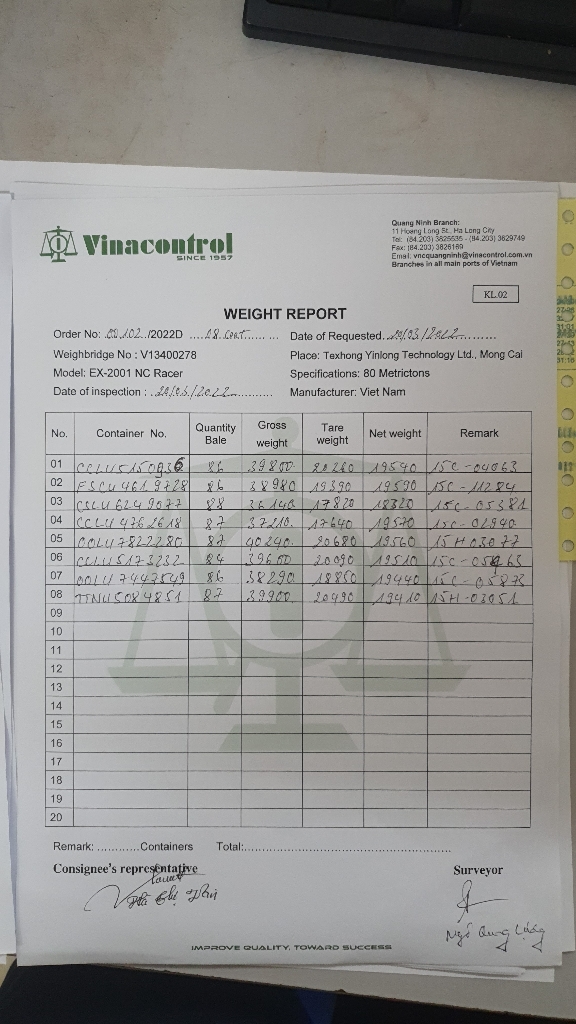 Vinacontrol
SINCE 1957
Quang Ninh Branch:
11 Hoang Long St., Ha Long City
Tel: (84.203) 3825535 - (84.203) 3629749
Fax: (84.203) 3826169
Email: vncquangninh@vinacontrol.com.vn
Branches in all main ports of Vietnam
KL.02
WEIGHT REPORT
Order No: /2022D 08 cont Date of Requested 20/03/2022
Weighbridge No : V13400278 Place: Texhong Yinlong Technology Ltd., Mong Cai
Model: EX-2001 NC Racer Specifications: 80 Metrictons
Date of inspection : 20/03/2022 Manufacturer: Viet Nam
No. Container No. Quantity Bale Gross weight Tare weight Net weight Remark
01 CCLU5150936 86 39800 20260 19540 15C-04063
02 FSCU4619728 86 38980 19390 19590 15C-11284
03 CSLU6249077 88 36140 17820 18320 15C-05381
04 CCLU4762618 87 37210 17640 19570 15C-02940
05 OOLU7822280 87 40240 20680 19560 15H03077
06 CLLU5173232 84 39600 20090 19510
07 OOLU7447549 86 38290 18850 19440 15C-05873
08 TTNU5084851 87 39900 20490 19410 15H-03051
09
10
11
12
13
14
15
16
17
18
19
20
Remark: ............Containers Total:
Consignee's representative Surveyor
Ngô Quang
IMPROVE QUALITY, TOWARD SUCCESS